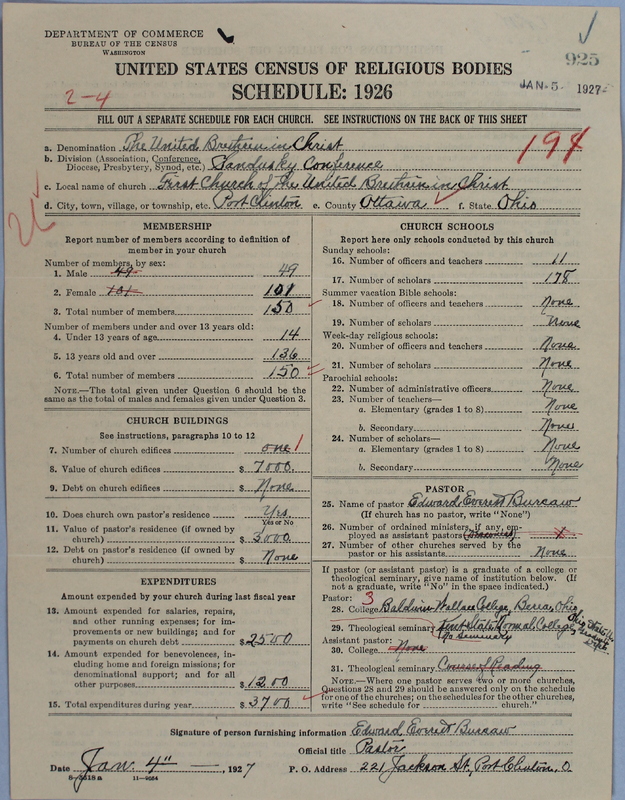 DEPARTMENT OF COMMERCE
BUREAU OF THE CENSUS
WASHINGTON
925
UNITED STATES CENSUS OF RELIGIOUS BODIES
JAN-5 1927
2-4
SCHEDULE: 1926
FILL OUT A SEPARATE SCHEDULE FOR EACH CHURCH. SEE INSTRUCTIONS ON THE BACK OF THIS SHEET
194
a. Denomination The United Brethren in Christ
b. Division (Association, Conference, Diocese, Presbytery, Synod, etc.) Sandusky Conference
c. Local name of church First Church of the United Brethren in Christ
d. City, town, village, or township, etc. Port Clinton e. County Ottawa f. State Ohio
MEMBERSHIP
Report number of members according to definition of
member in your church
Number of members, by sex:
1. Male 49 49
2. Female 101 101
3. Total number of members 150
Number of members under and over 13 years old:
4. Under 13 years of age 14
5. 13 years old and over 136
6. Total number of members 150
NOTE.—The total given under Question 6 should be the
same as the total of males and females given under Question 3.
CHURCH BUILDINGS
See instructions, paragraphs 10 to 12
7. Number of church edifices one 1
8. Value of church edifices $ 7000.
9. Debt on church edifices $ None
10. Does church own pastor's residence Yes
Yes or No
11. Value of pastor's residence (if owned by
church) $ 3000
12. Debt on pastor's residence (if owned by
church) $ None
EXPENDITURES
Amount expended by your church during last fiscal year
13. Amount expended for salaries, repairs,
and other running expenses; for im-
provements or new buildings; and for
payments on church debt $ 2500
14. Amount expended for benevolences, in-
cluding home and foreign missions; for
denominational support; and for all
other purposes $ 1200
15. Total expenditures during year $ 3700
CHURCH SCHOOLS
Report here only schools conducted by this church
Sunday schools:
16. Number of officers and teachers 11
17. Number of scholars 178
Summer vacation Bible schools:
18. Number of officers and teachers None
19. Number of scholars None
Week-day religious schools:
20. Number of officers and teachers None
21. Number of scholars None
Parochial schools:
22. Number of administrative officers None
23. Number of teachers—
a. Elementary (grades 1 to 8) None
b. Secondary None
24. Number of scholars—
a. Elementary (grades 1 to 8) None
b. Secondary None
PASTOR
25. Name of pastor Edward Everett Burcaw
(If church has no pastor, write "None")
26. Number of ordained ministers, if any, em-
ployed as assistant pastors
27. Number of other churches served by the
pastor or his assistants None
If pastor (or assistant pastor) is a graduate of a college or
theological seminary, give name of institution below. (If
not a graduate, write "No" in the space indicated.)
Pastor: 3
28. College Baldwin Wallace College, Berea, Ohio
29. Theological seminary Kent State Normal College
No Seminary
Assistant pastor:
30. College None
31. Theological seminary Course of Reading
NOTE.—Where one pastor serves two or more churches,
Questions 28 and 29 should be answered only on the schedule
for one of the churches; on the schedules for the other churches,
write "See schedule for church."
Signature of person furnishing information Edward Everett Burcaw
Official title Pastor
Date Jan. 4", 1927 P. O. Address 221 Jackson St., Port Clinton, O.
8-3518a 11-9084